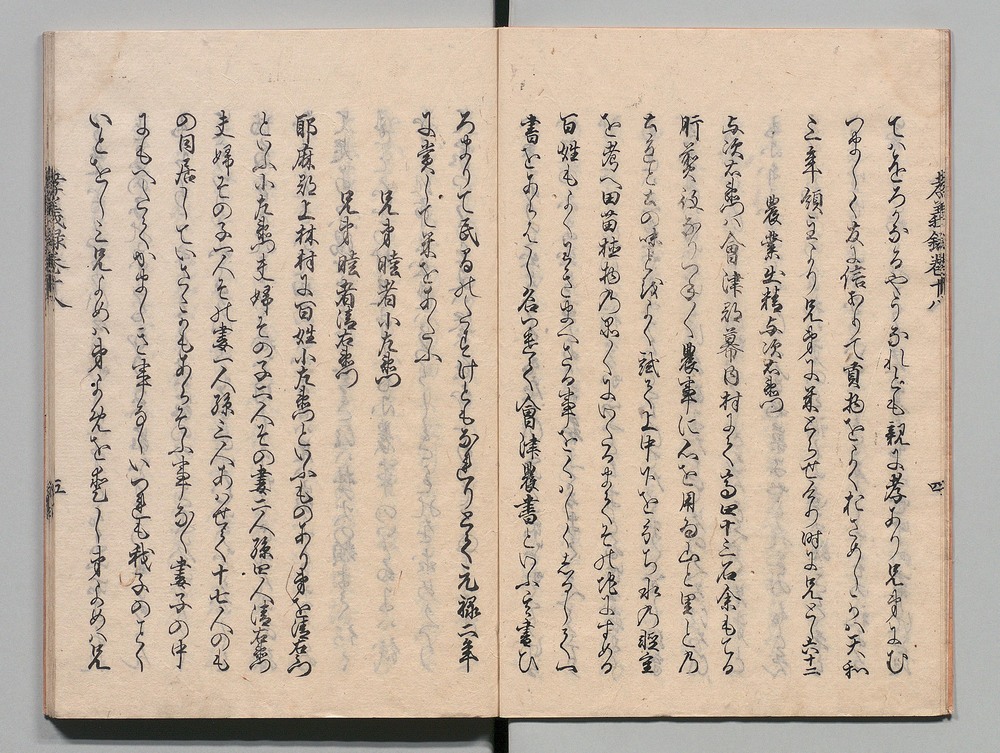 孝義録巻廿八
四
てハをろかなるやうなれども親に孝あり兄弟にむ
つましく友に信ありて貢物をよくおさめしかハ天和
三年領主より兄弟に米とらせけり時に兄とし六十三
農業出精与次右衛門
与次右衛門ハ會津郡幕内村にて高四十三石余もてる
肝煎役なりつねに農事に心を用ゐ山と里との
を考へ田苗植物の
百姓もよくわきまへさる事をくハしくしるして一
書をあらはし名つけて會津農書といふ此書ひ
ろまりて民の たすけともなれりとて元禄二年
に賞して米をあたふ
兄弟睦者小左衛門
兄弟睦者清右衛門
耶麻郡上林村に百姓小左衛門といふものあり弟を清右衛門
といふ小左衛門夫婦その子二人その妻二人孫四人清右衛門
夫婦その子一人その妻一人孫三人あはせて十七人のも
の同居していさゝかもあらそふ事なし妻子の中
にもへたてかましき事なくいつれも我子のことく
いとをしミ兄よめハ弟よめを愛し弟よめハ兄
孝義録巻廿八
五